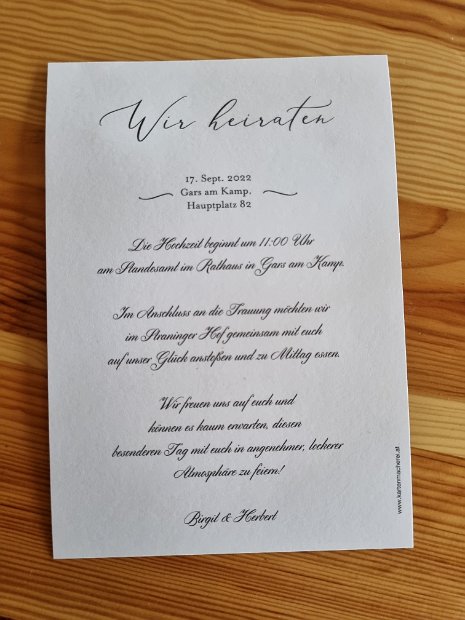 Wir heiraten
17. Sept. 2022
Gars am Kamp.
Hauptplatz 82
Die Hochzeit beginnt um 11:00 Uhr
am Standesamt im Rathaus in Gars am Kamp.
Im Anschluss an die Trauung möchten wir
im Straninger Hof gemeinsam mit euch
auf unser Glück anstoßen und zu Mittag essen.
Wir freuen uns auf euch und
können es kaum erwarten, diesen
besonderen Tag mit euch in angenehmer, lockerer
Atmosphäre zu feiern!
Birgit & Herbert
www.kartenmacherei.at